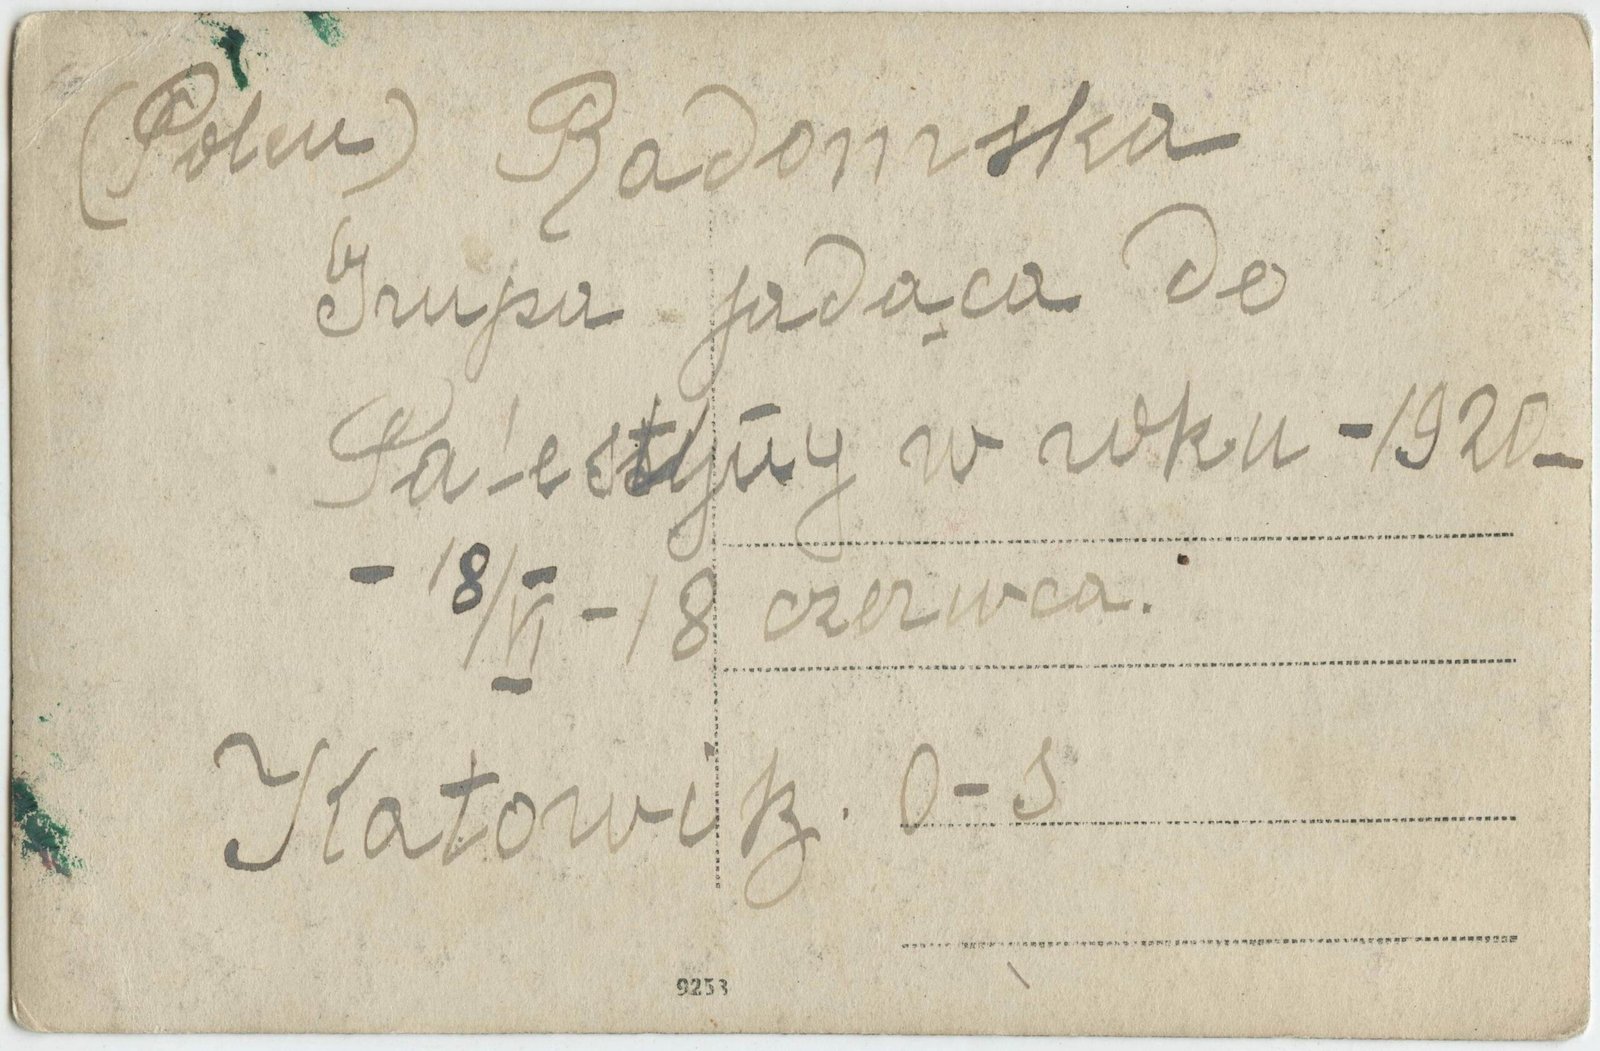 (Polen) Radomska
Grupa jadąca do
Palestyny w roku -1920-
- 18/VI - 18 czerwca.
Katowitz. O-S
9253